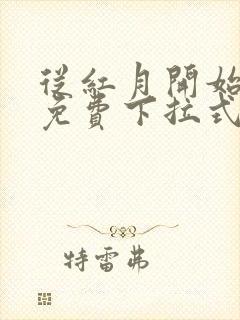 從紅月開始
免費下拉式
特雷弗